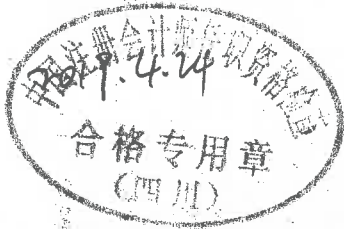 中国注册会计师任职资格检查
2019.4.24
合格专用章
(四川)